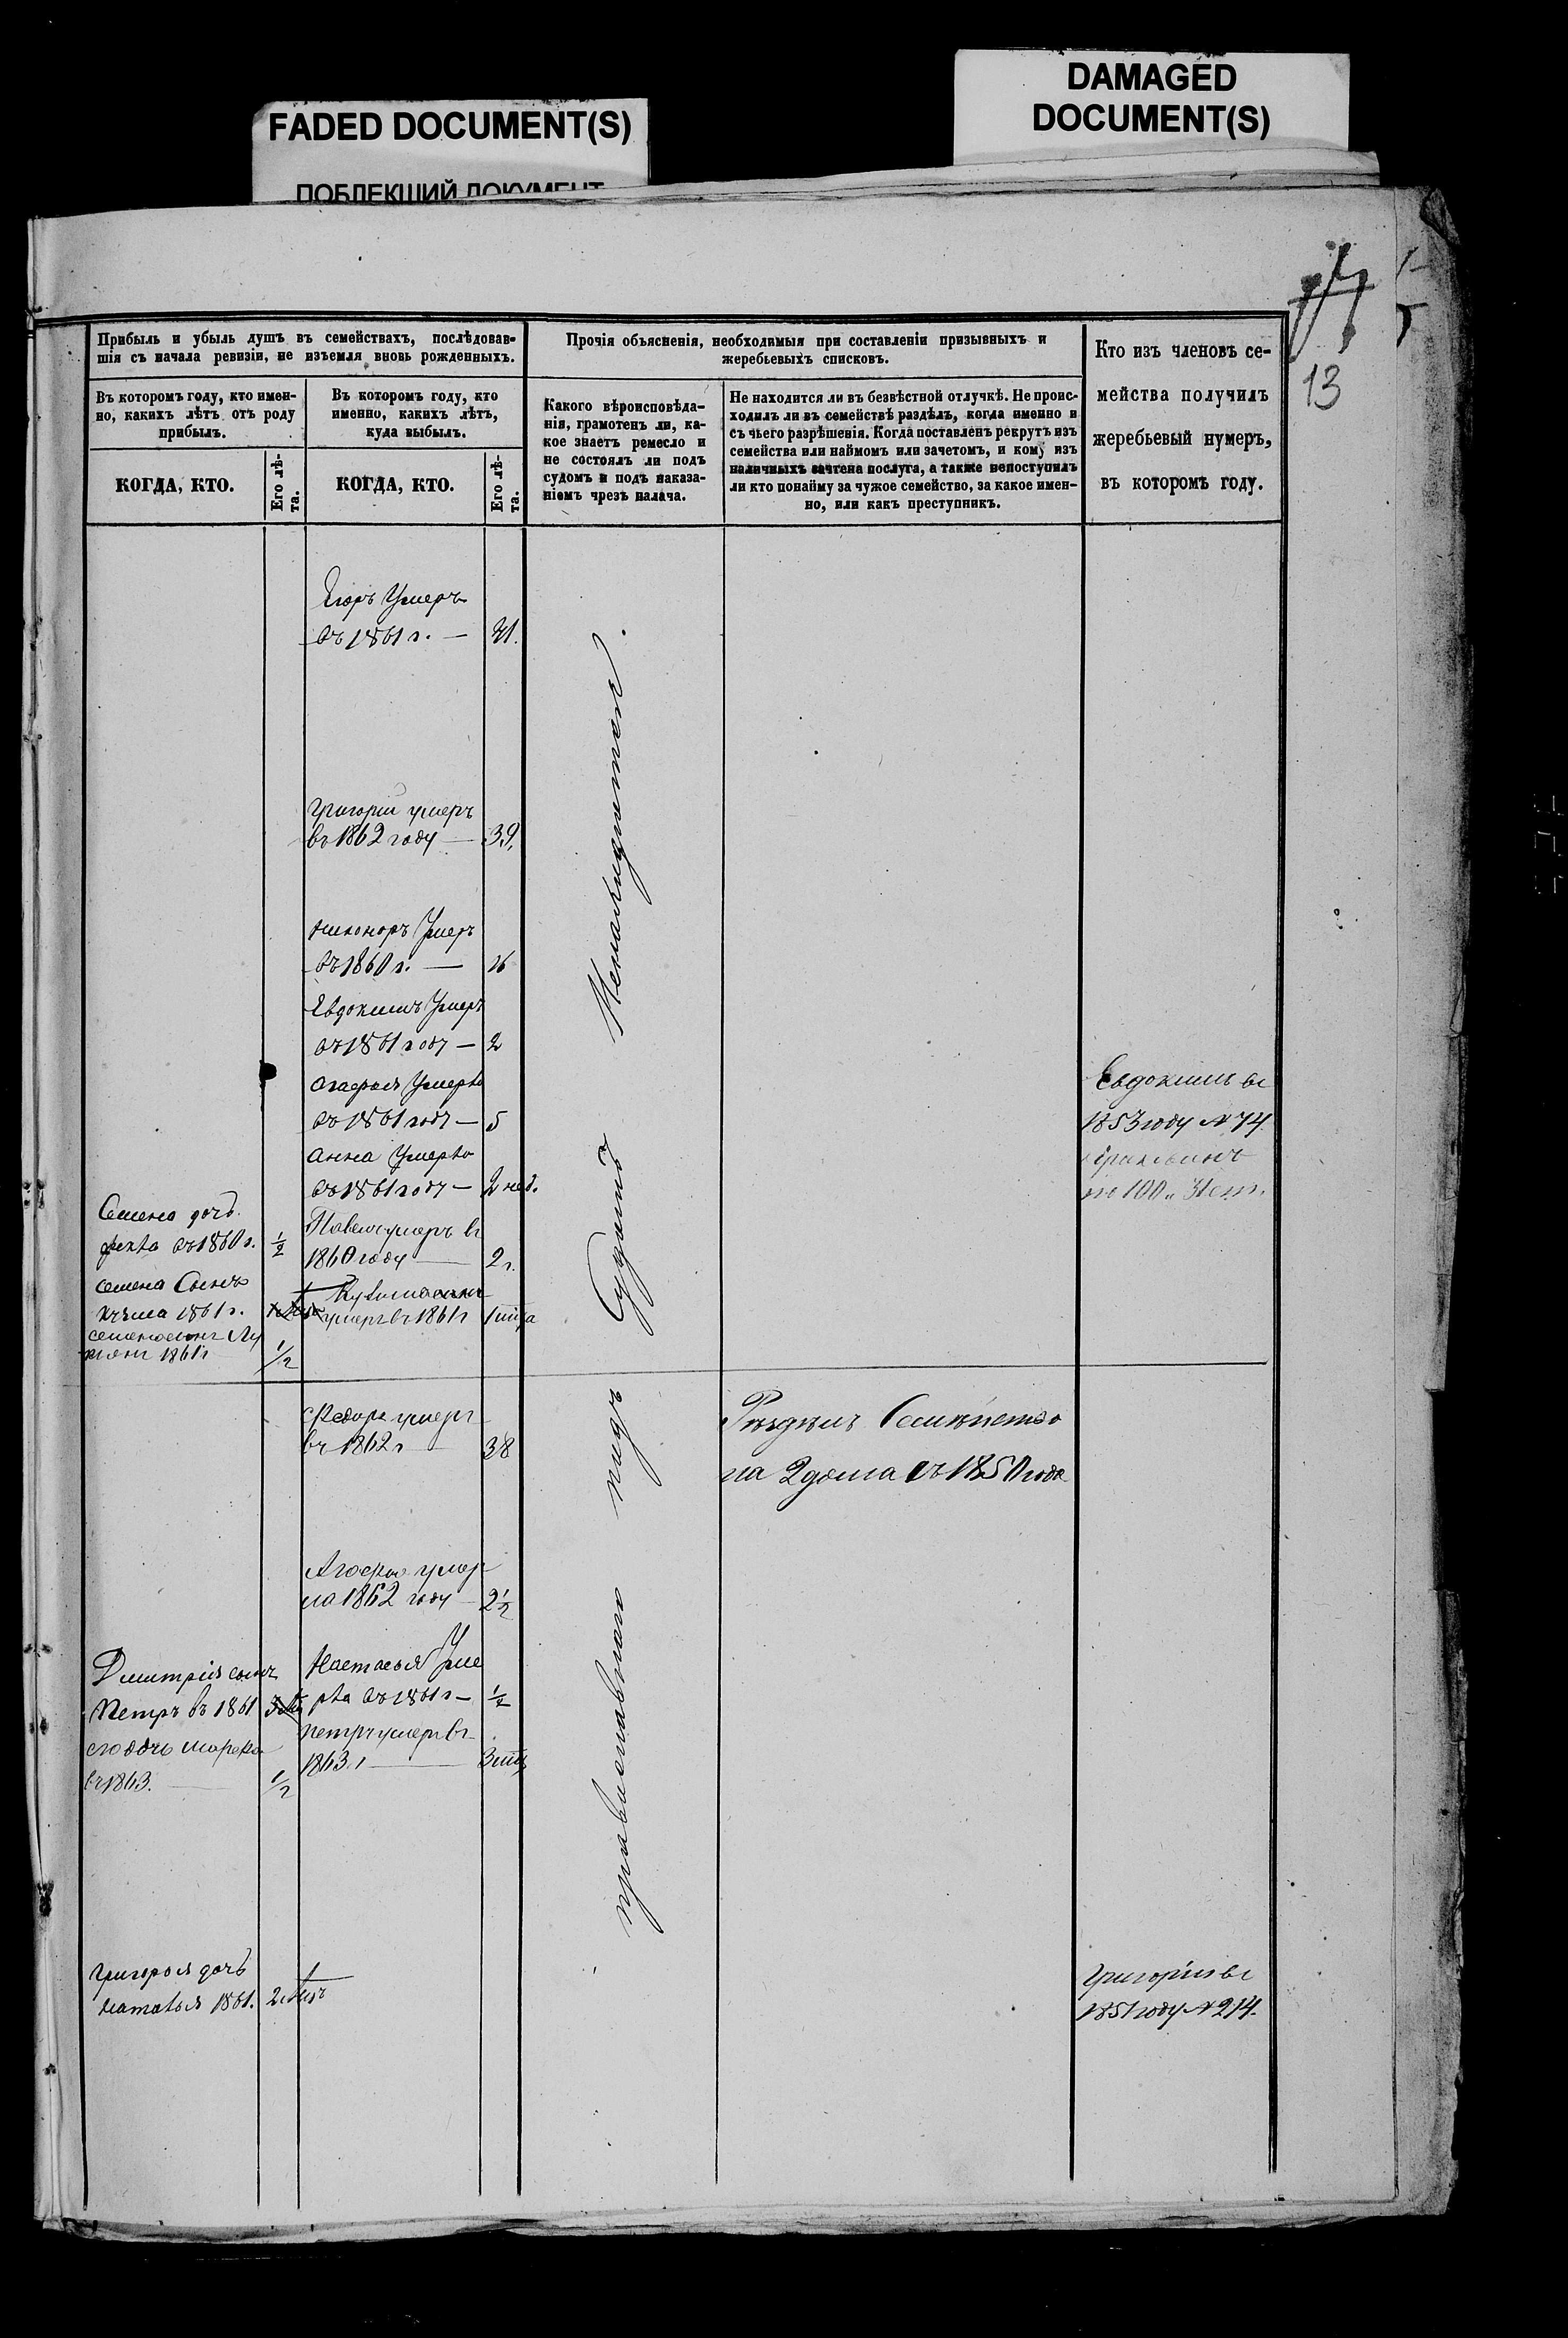 DAMAGED
DOCUMENT(S)
FADED DOCUMENT(S)
ПОБЛЕКШИЙ ДОКУМЕНТ
13
Прибыль и убыль душъ въ семействахъ, послѣдовав-
шія съ начала ревизіи, не изъемля вновь рожденныхъ.
Въ которомъ году, кто имен-
но, какихъ лѣтъ отъ роду
прибылъ.
Въ которомъ году, кто
именно, какихъ лѣтъ,
куда выбылъ.
КОГДА, КТО.
Его лѣ-
та.
КОГДА, КТО.
Его лѣ-
та.
Прочія объясненія, необходимыя при составленіи призывныхъ и
жеребьевыхъ списковъ.
Какого вѣроисповѣда-
нія, грамотенъ ли, ка-
кое знаетъ ремесло и
не состоялъ ли подъ
судомъ и подъ наказа-
ніемъ чрезъ палача.
Не находится ли въ безвѣстной отлучкѣ. Не проис-
ходилъ ли въ семействѣ раздѣлъ, когда именно и
съ чьего разрѣшенія. Когда поставленъ рекрутъ изъ
семейства или наймомъ или зачетомъ, и кому изъ
наличныхъ зачтена послуга, а также непоступилъ
ли кто понайму за чужое семейство, за какое имен-
но, или какъ преступникъ.
Кто изъ членовъ се-
мейства получилъ
жеребьевый нумеръ,
въ которомъ году.
Егоръ Умеръ
въ 1861 г. —
Григорій умеръ
въ 1862 году — 39.
Никоноръ Умеръ
въ 1860 г. —
Евдокимъ Умеръ
въ 1861 году — 2
Агафья Умерла
въ 1861 году — 5
Анна Умерла
въ 1861 году — 2 нед.
Павелъ умеръ въ
1860 году — 2 г.
умеръ въ 1861 г
Семена дочь
въ 1860 г. ½
Семена Сынъ
1861 г.
1861 г ½
Федоръ умеръ
въ 1862 г — 38
Агафья умер
ла 1862 году — 2½
Настасья Уме
рла въ 1861 г — ½
Петръ умеръ въ
1863 г —
Дмитрія сынъ
Петръ въ 1861
его дочь Марфа
въ 1863. — ½
Григорья дочь
Наталья 1861.
православнаго подъ Судомъ
Раздѣлъ Семейства
на 2 дома съ 1850 года
Евдокимъ въ
1853 году № 74
Григорій въ
1851 году № 214.